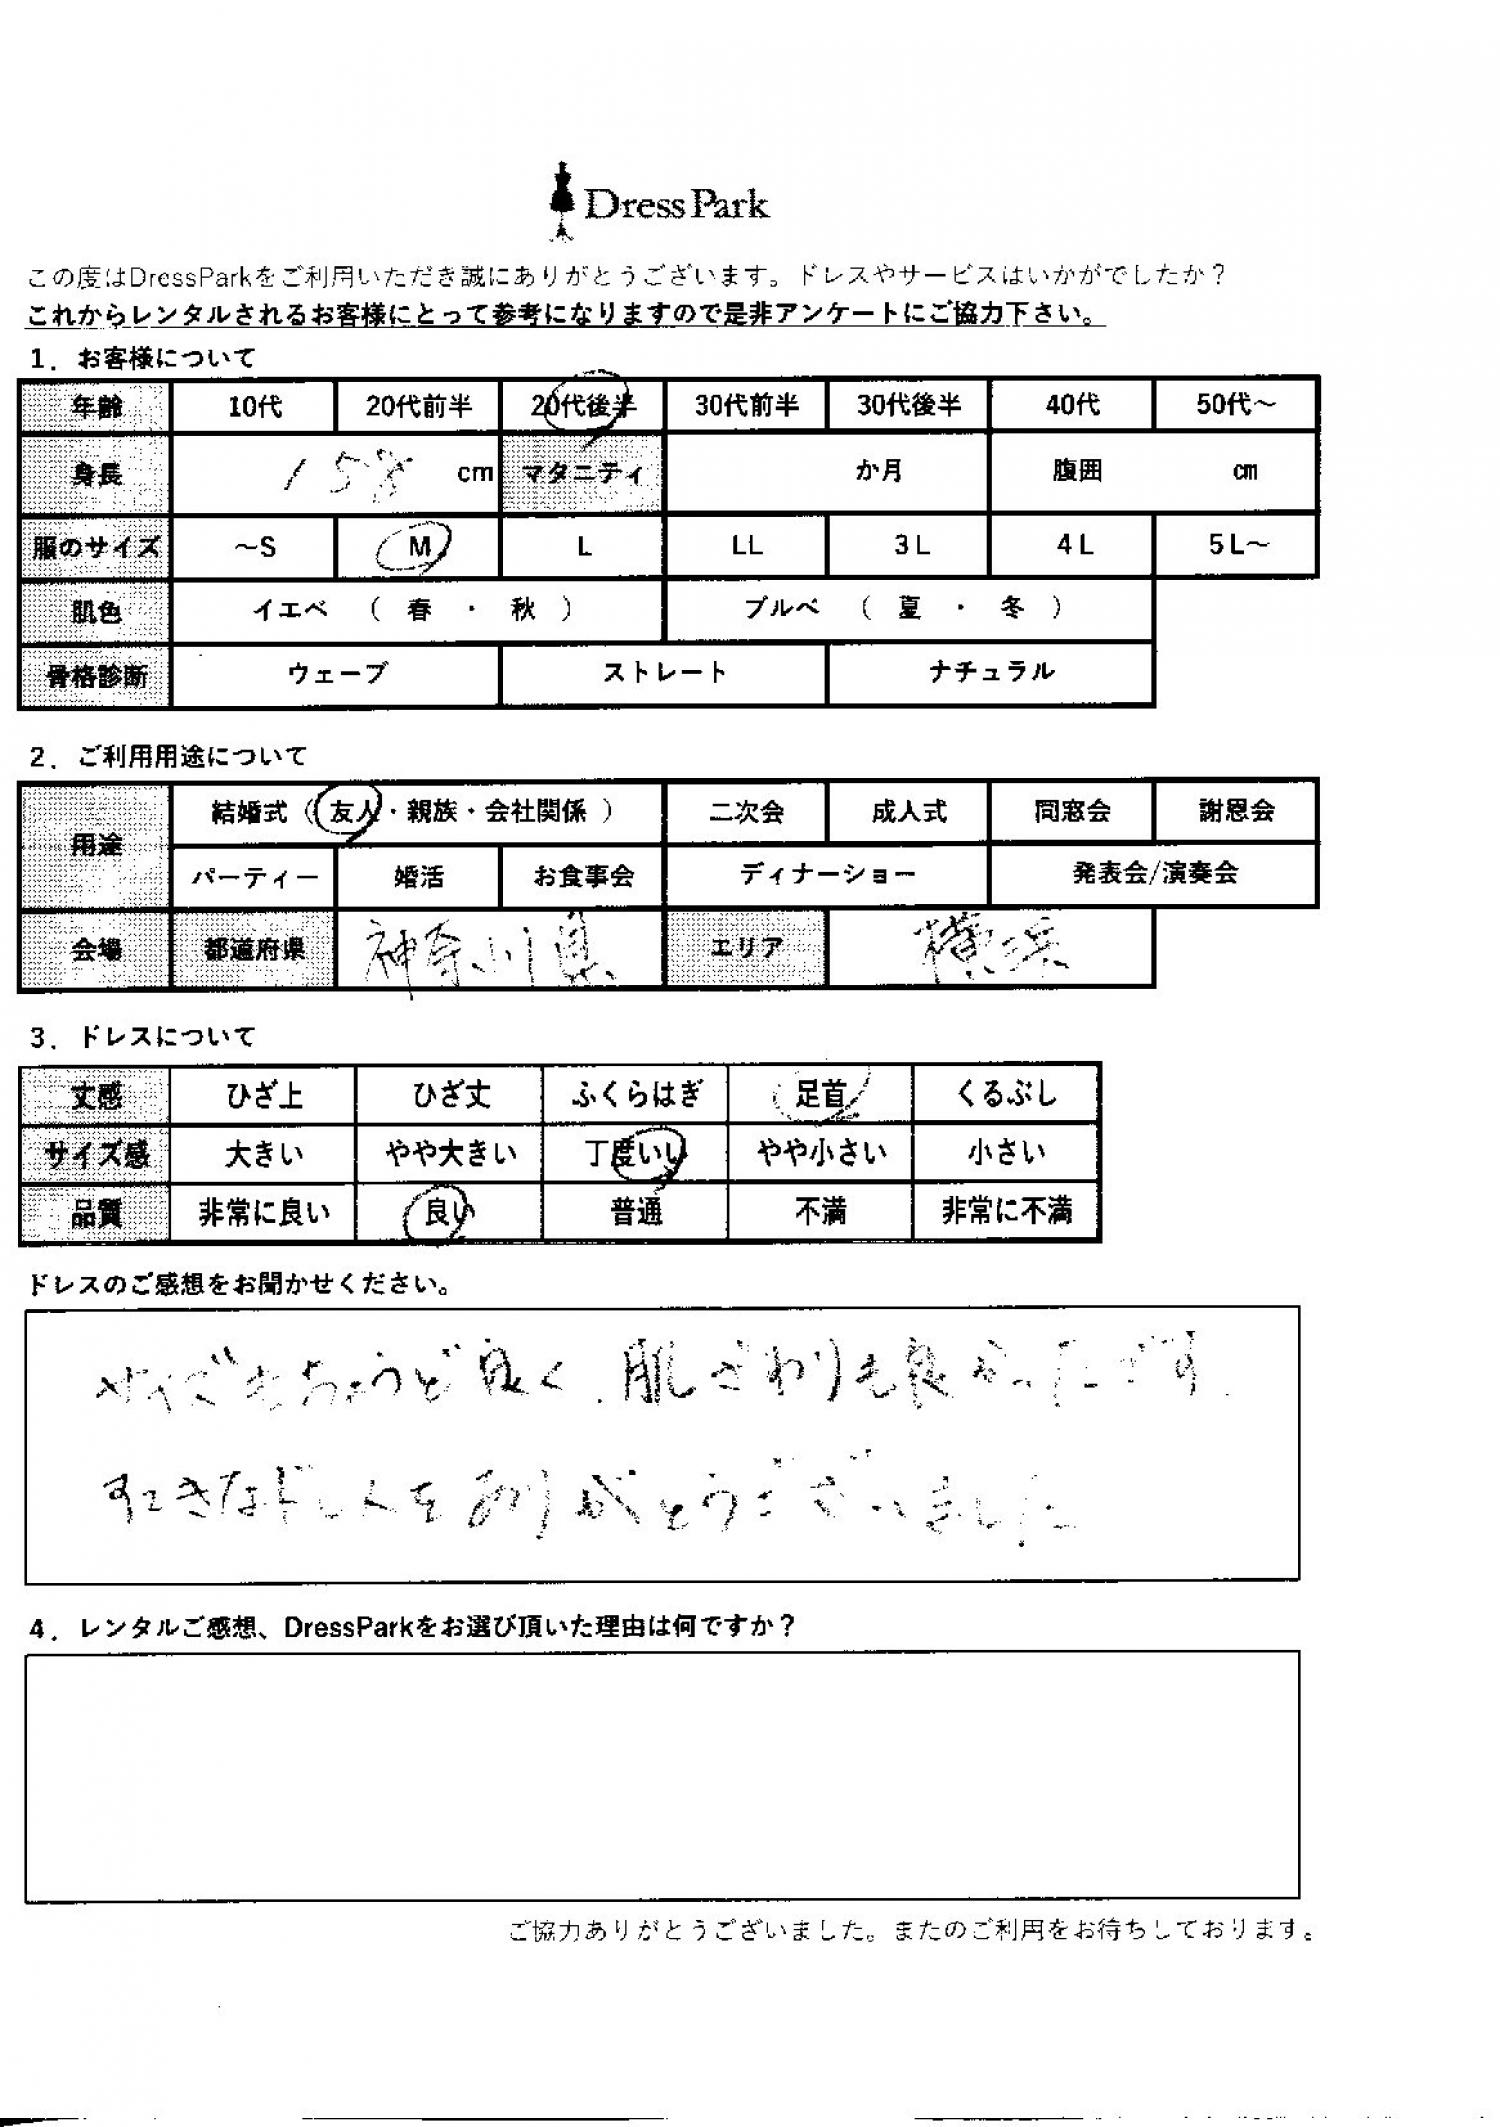 DressPark
この度はDressParkをご利用いただき誠にありがとうございます。ドレスやサービスはいかがでしたか？
これからレンタルされるお客様にとって参考になりますので是非アンケートにご協力下さい。
1．お客様について
年齢 10代 20代前半 20代後半 30代前半 30代後半 40代 50代～
身長 158 cm マタニティ か月 腹囲 cm
服のサイズ ～S M L LL 3L 4L 5L～
肌色 イエベ （ 春 ・ 秋 ） ブルベ （ 夏 ・ 冬 ）
骨格診断 ウェーブ ストレート ナチュラル
2．ご利用用途について
用途 結婚式（ 友人・親族・会社関係 ） 二次会 成人式 同窓会 謝恩会
パーティー 婚活 お食事会 ディナーショー 発表会/演奏会
会場 都道府県 神奈川県 エリア 横浜
3．ドレスについて
丈感 ひざ上 ひざ丈 ふくらはぎ 足首 くるぶし
サイズ感 大きい やや大きい 丁度いい やや小さい 小さい
品質 非常に良い 良い 普通 不満 非常に不満
ドレスのご感想をお聞かせください。
サイズもちょうど良く、肌ざわりも良かったです。
すてきなドレスをありがとうございました
4．レンタルご感想、DressParkをお選び頂いた理由は何ですか？
ご協力ありがとうございました。またのご利用をお待ちしております。